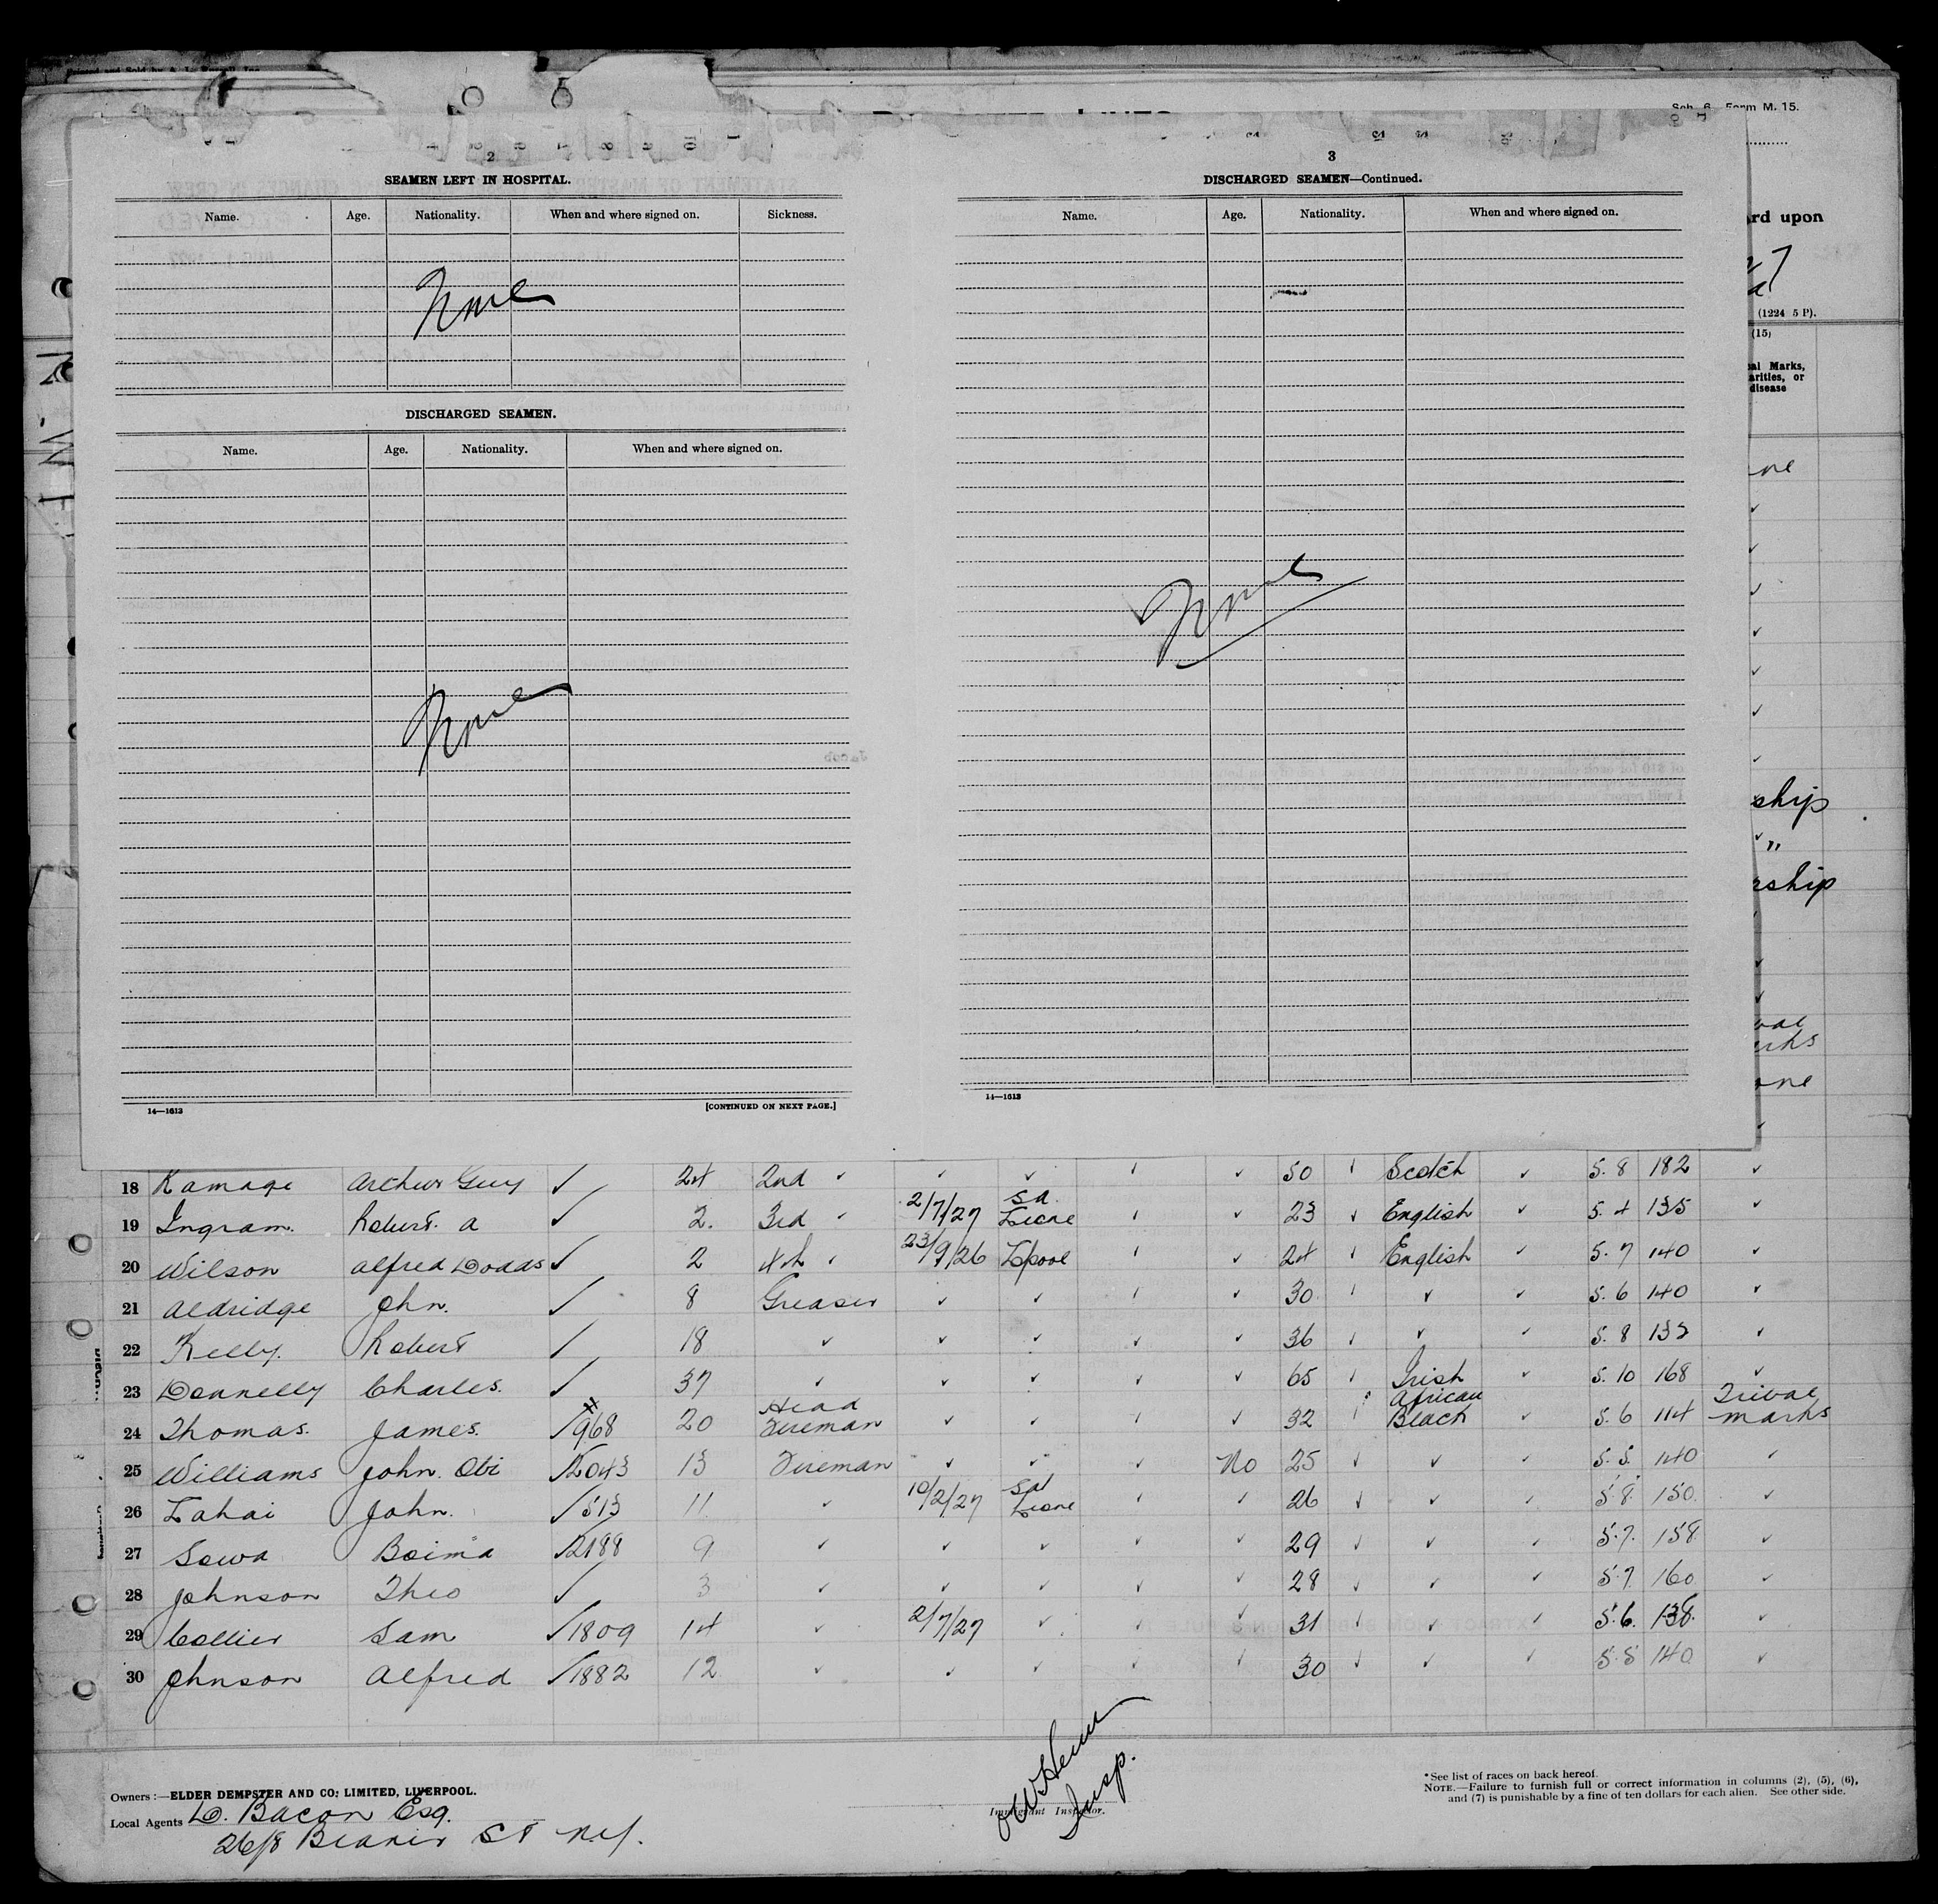 Sch. 6 Form M. 15.
rd upon
(1224 5 P).
(15)
al Marks,
arities, or
disease
2
SEAMEN LEFT IN HOSPITAL.
Name. Age. Nationality. When and where signed on. Sickness.
None
DISCHARGED SEAMEN.
Name. Age. Nationality. When and where signed on.
None
14—1613 [CONTINUED ON NEXT PAGE.]
3
DISCHARGED SEAMEN—Continued.
Name. Age. Nationality. When and where signed on.
None
14—1613
one
ship
"
rship
arks
one
18 Ramage Arthur Guy ✓ 24 2nd ✓ ✓ ✓ ✓ ✓ 50 ✓ Scotch ✓ 5.8 182 ✓
19 Ingram. Robert. A ✓ 2. 3rd ✓ 2/7/27 Sa. Leone ✓ ✓ 23 ✓ English ✓ 5.4 135 ✓
20 Wilson Alfred Dodds ✓ 2 4th ✓ 23/9/26 Lpool ✓ ✓ 24 ✓ English ✓ 5.7 140 ✓
21 Aldridge John. ✓ 8 Greaser ✓ ✓ ✓ ✓ 30 ✓ ✓ ✓ 5.6 140 ✓
22 Kelly. Robert ✓ 18 ✓ ✓ ✓ ✓ ✓ 36 ✓ ✓ ✓ 5.8 132 ✓
23 Donnelly Charles. ✓ 37 ✓ ✓ ✓ ✓ ✓ 65 ✓ Irish ✓ 5.10 168 ✓
24 Thomas. James. ✓ 968 20 Head Fireman ✓ ✓ ✓ ✓ 32 ✓ African Black ✓ 5.6 114 Tribal marks
25 Williams John. Obi ✓ 2043 13 Fireman ✓ ✓ ✓ No 25 ✓ ✓ ✓ 5.5. 140 ✓
26 Lahai John. ✓ 513 11 ✓ 10/2/27 Sa Leone ✓ ✓ 26 ✓ ✓ ✓ 5.8. 150. ✓
27 Sowa Boima ✓ 2188 9 ✓ ✓ ✓ ✓ ✓ 29 ✓ ✓ ✓ 5.7. 158. ✓
28 Johnson Theo ✓ 3 ✓ ✓ ✓ ✓ ✓ 28 ✓ ✓ ✓ 5.7. 160. ✓
29 Collier Sam ✓ 1809 14 ✓ 2/7/27 ✓ ✓ ✓ 31 ✓ ✓ ✓ 5.6. 138. ✓
30 Johnson Alfred ✓ 1882 12 ✓ ✓ ✓ ✓ ✓ 30 ✓ ✓ ✓ 5.5 140 ✓
Owners:—ELDER DEMPSTER AND CO: LIMITED, LIVERPOOL.
Local Agents D. Bacon Esq.
26/8 Beaver St N.Y.
Insp.
Immigrant Inspector.
*See list of races on back hereof.
NOTE.—Failure to furnish full or correct information in columns (2), (5), (6),
and (7) is punishable by a fine of ten dollars for each alien. See other side.